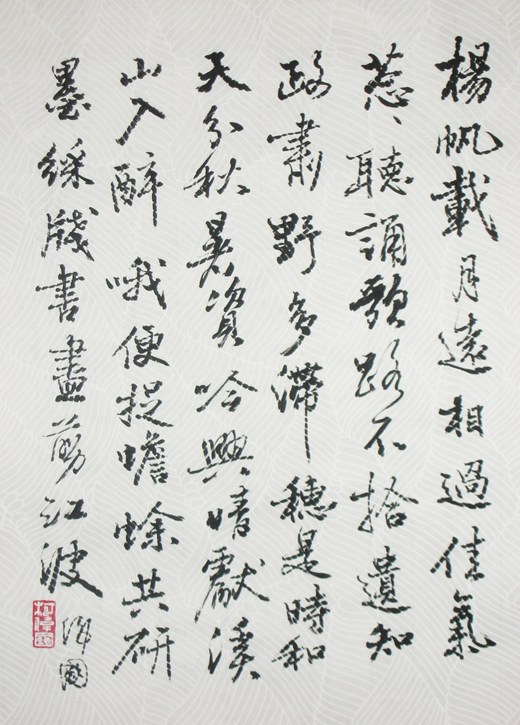 楊帆載月遠相過佳氣
葱、聽誦歌路不拾遺知
政肅野多滯穗是時和
天分秋暑資吟興晴獻溪
山入醉哦便捉蟾蜍共研
墨綵牋書盡剪江波